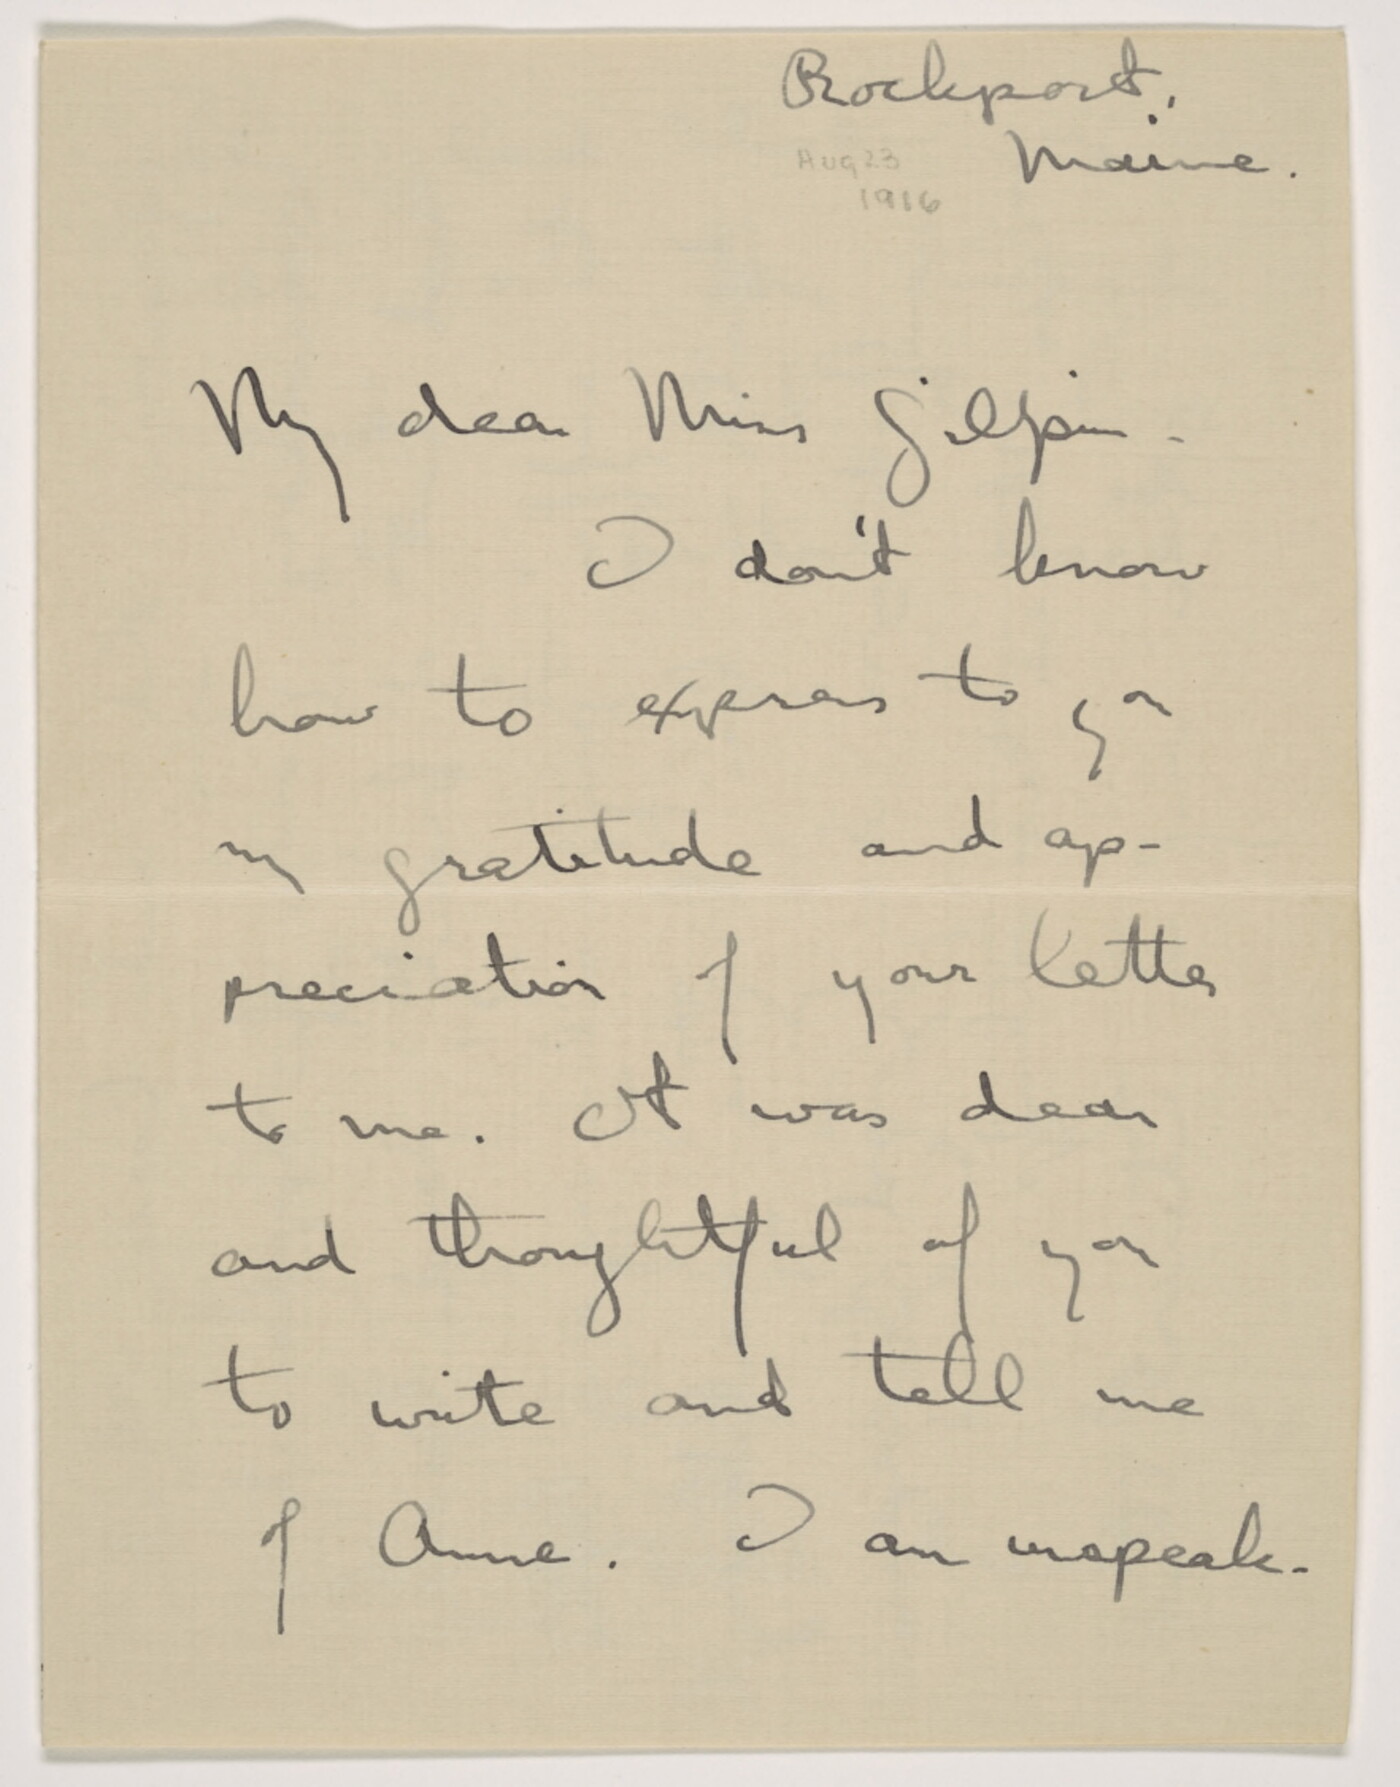 Rockport,
Maine.
Aug 23
1916
My dear Miss Gilpin -
I don't know
how to express to you
my gratitude and ap-
preciation of your letter
to me. It was dear
and thoughtful of you
to write and tell me
of Anne. I am unspeak-